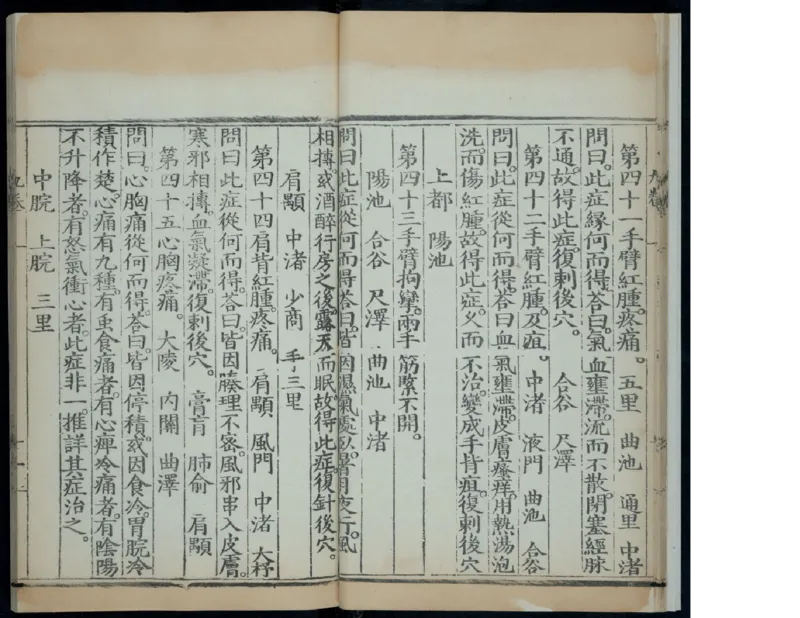 第四十一手臂紅腫。疼痛。 五里 曲池 通里 中渚
問曰。此症緣何而得。荅曰。氣血壅滯。流而不散。閉塞經脉
不通。故得此症。復刺後穴。 合谷 尺澤
第四十二手臂紅腫。及疽。 中渚 液門 曲池 合谷
問曰。此症從何而得。荅曰。血氣壅滯。皮膚瘙痒。用熱湯泡
洗。而傷紅腫。故得此症。乂而不治。變成手背疽。復刺後穴
上都 陽池
第四十三手臂拘攣。兩手筋緊不開。
陽池 合谷 尺澤 曲池 中渚
問曰。此症從何而得。荅曰。皆因濕氣處臥。暑月夜行。風
相摶。或酒醉行房之後。露天而眠。故得此症。復針後穴。
肩顒 中渚 少商 手三里
第四十四肩背紅腫。疼痛。 肩顒 風門 中渚 大杼
問曰。此症從何而得。荅曰。皆因腠理不密。風邪串入皮膚。
寒邪相摶。血氣凝滯。復刺後穴。 膏肓 肺俞 肩顒
第四十五心胸疼痛。 大陵 內關 曲澤
問曰。心胸痛從何而得。荅曰。皆因停積。或因食冷。胃脘冷
積作楚。心痛有九種。有虫食痛者。有心痺冷痛者。有陰陽
不升降者。有怒氣衝心者。此症非一。推詳其症治之。
中脘 上脘 三里
九卷